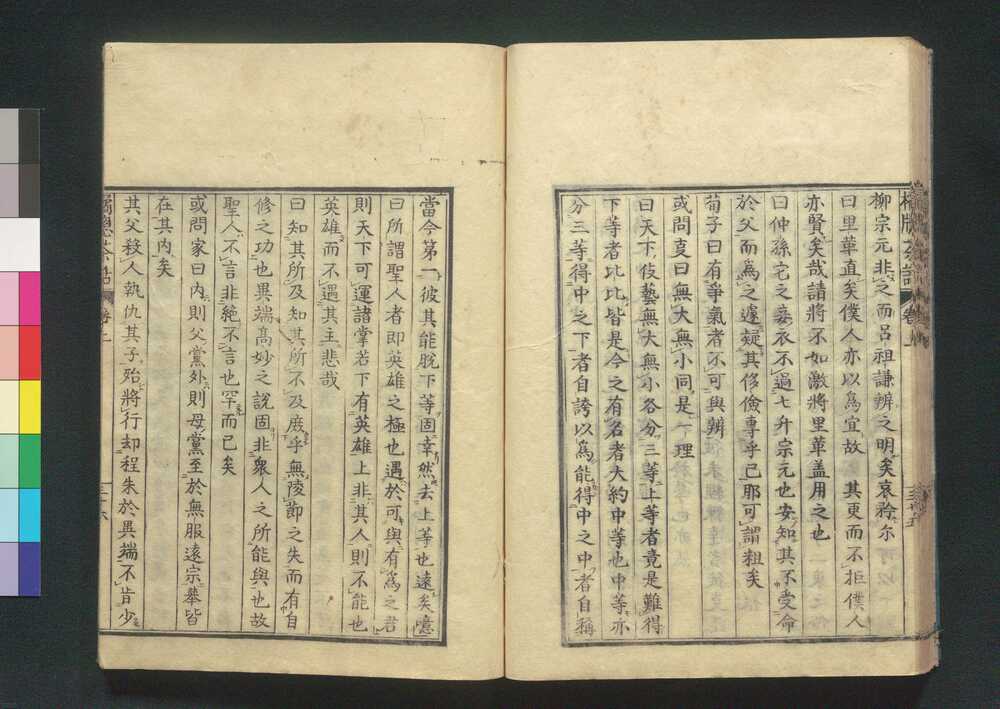 柳宗元非之而呂祖謙辨之明矣哀矜尓
曰里革直矣僕人亦以爲宜故其更而不拒僕人
亦賢矣哉請將不如激將里革盖用之也
曰仲孫它之妾衣不過七升宗元也安知其不受命
於父而爲之遽疑其侈儉專乎己耶可謂粗矣
荀子曰有爭氣者不可與辨
或問爰曰無大無小同是一理
曰天下伎藝無大無小各分三等上等者竟是難得
下等者比比皆是今之有名者大約中等也中等亦
分三等得中之下者自誇以爲能得中之中者自稱
當今第一彼其能脫下等固幸然去上等也遠矣噫
曰所謂聖人者即英雄之極也遇於可與有爲之君
則天下可運諸掌若下有英雄上非其人則不能也
英雄而不遇其主悲哉
曰知其所及知其所不及庶乎無陵節之失而有自
修之功也異端高妙之說固非衆人之所能與也故
聖人不言非絕不言也罕而已矣
或問家曰內則父黨外則母黨至於無服遠宗擧皆
在其內矣
其父殺人執仇其子殆將行却程朱於異端不肯少